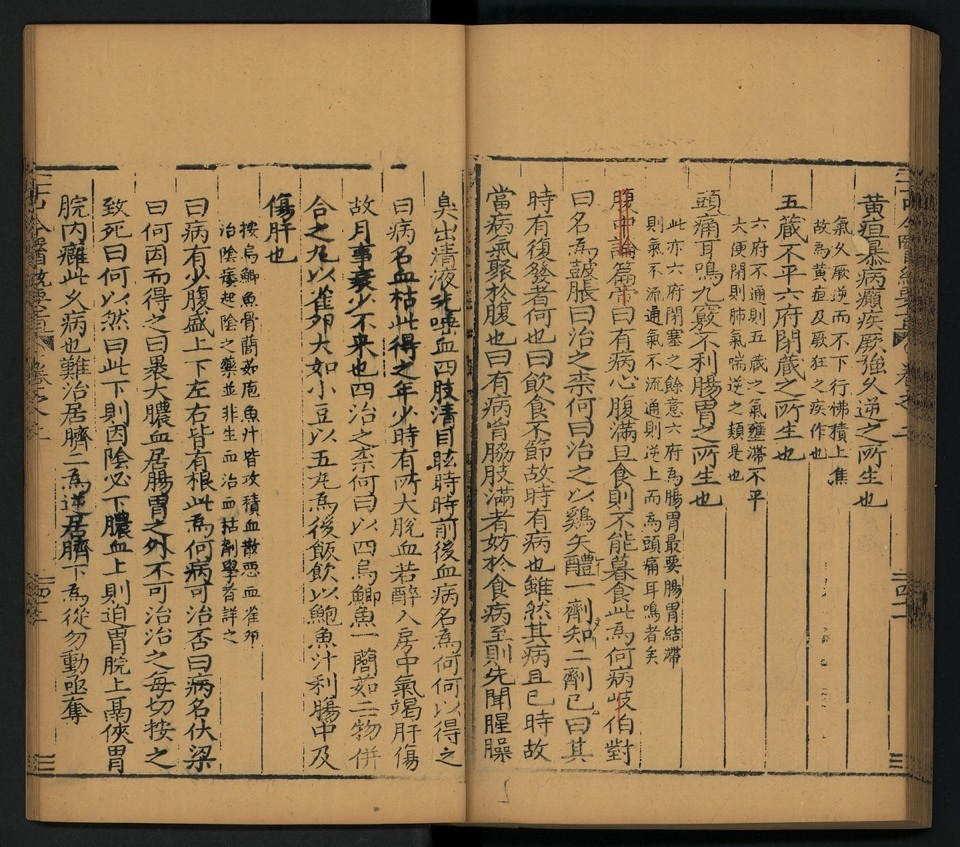 黃疸暴病癲疾厥強久逆之所生也
氣久厥逆而不下行怫積上焦
故為黃疸及厥狂之疾作也
五蔵不平六府閉蔵之所生也
六府不通則五蔵之氣壅滯不平
大便閉則肺氣喘逆之類是也
頭痛耳鳴九竅不利腸胃之所生也
此亦六府閉塞之餘意六府為腸胃最要腸胃結滯
則氣不流通氣不流通則逆上而為頭痛耳鳴者矣
腹中論篇帝曰有病心腹滿旦食則不能暮食此為何病岐伯對
曰名為鼓脹曰治之柰何曰治之以鷄矢醴一劑知二劑已曰其
時有復發者何也曰飲食不節故時有病也雖然其病且已時故
當病氣聚於腹也曰有病胷脇肢滿者妨於食病至則先聞腥臊
臭出清液先唾血四肢清目眩時時前後血病名為何何以得之
曰病名血枯此得之年少時有所大脫血若醉入房中氣竭肝傷
故月事衰少不来也曰治之柰何曰以四烏鰂魚一藘茹二物併
合之九以雀夘大如小豆以五丸為後飯飲以鮑魚汁利腸中及
傷肝也
按烏鰂魚骨藘茹鮑魚汁皆攻積血散惡血雀夘
治陰痿起陰之藥並非生血治血枯劑學者詳之
曰病有少腹盛上下左右皆有根此為何病可治否曰病名伏梁
曰何因而得之曰裹大膿血居腸胃之外不可治治之每切按之
致死曰何以然曰此下則因陰必下膿血上則迫胃脘上鬲俠胃
脘内癰此久病也難治居臍上為逆居臍下為從勿動亟奪